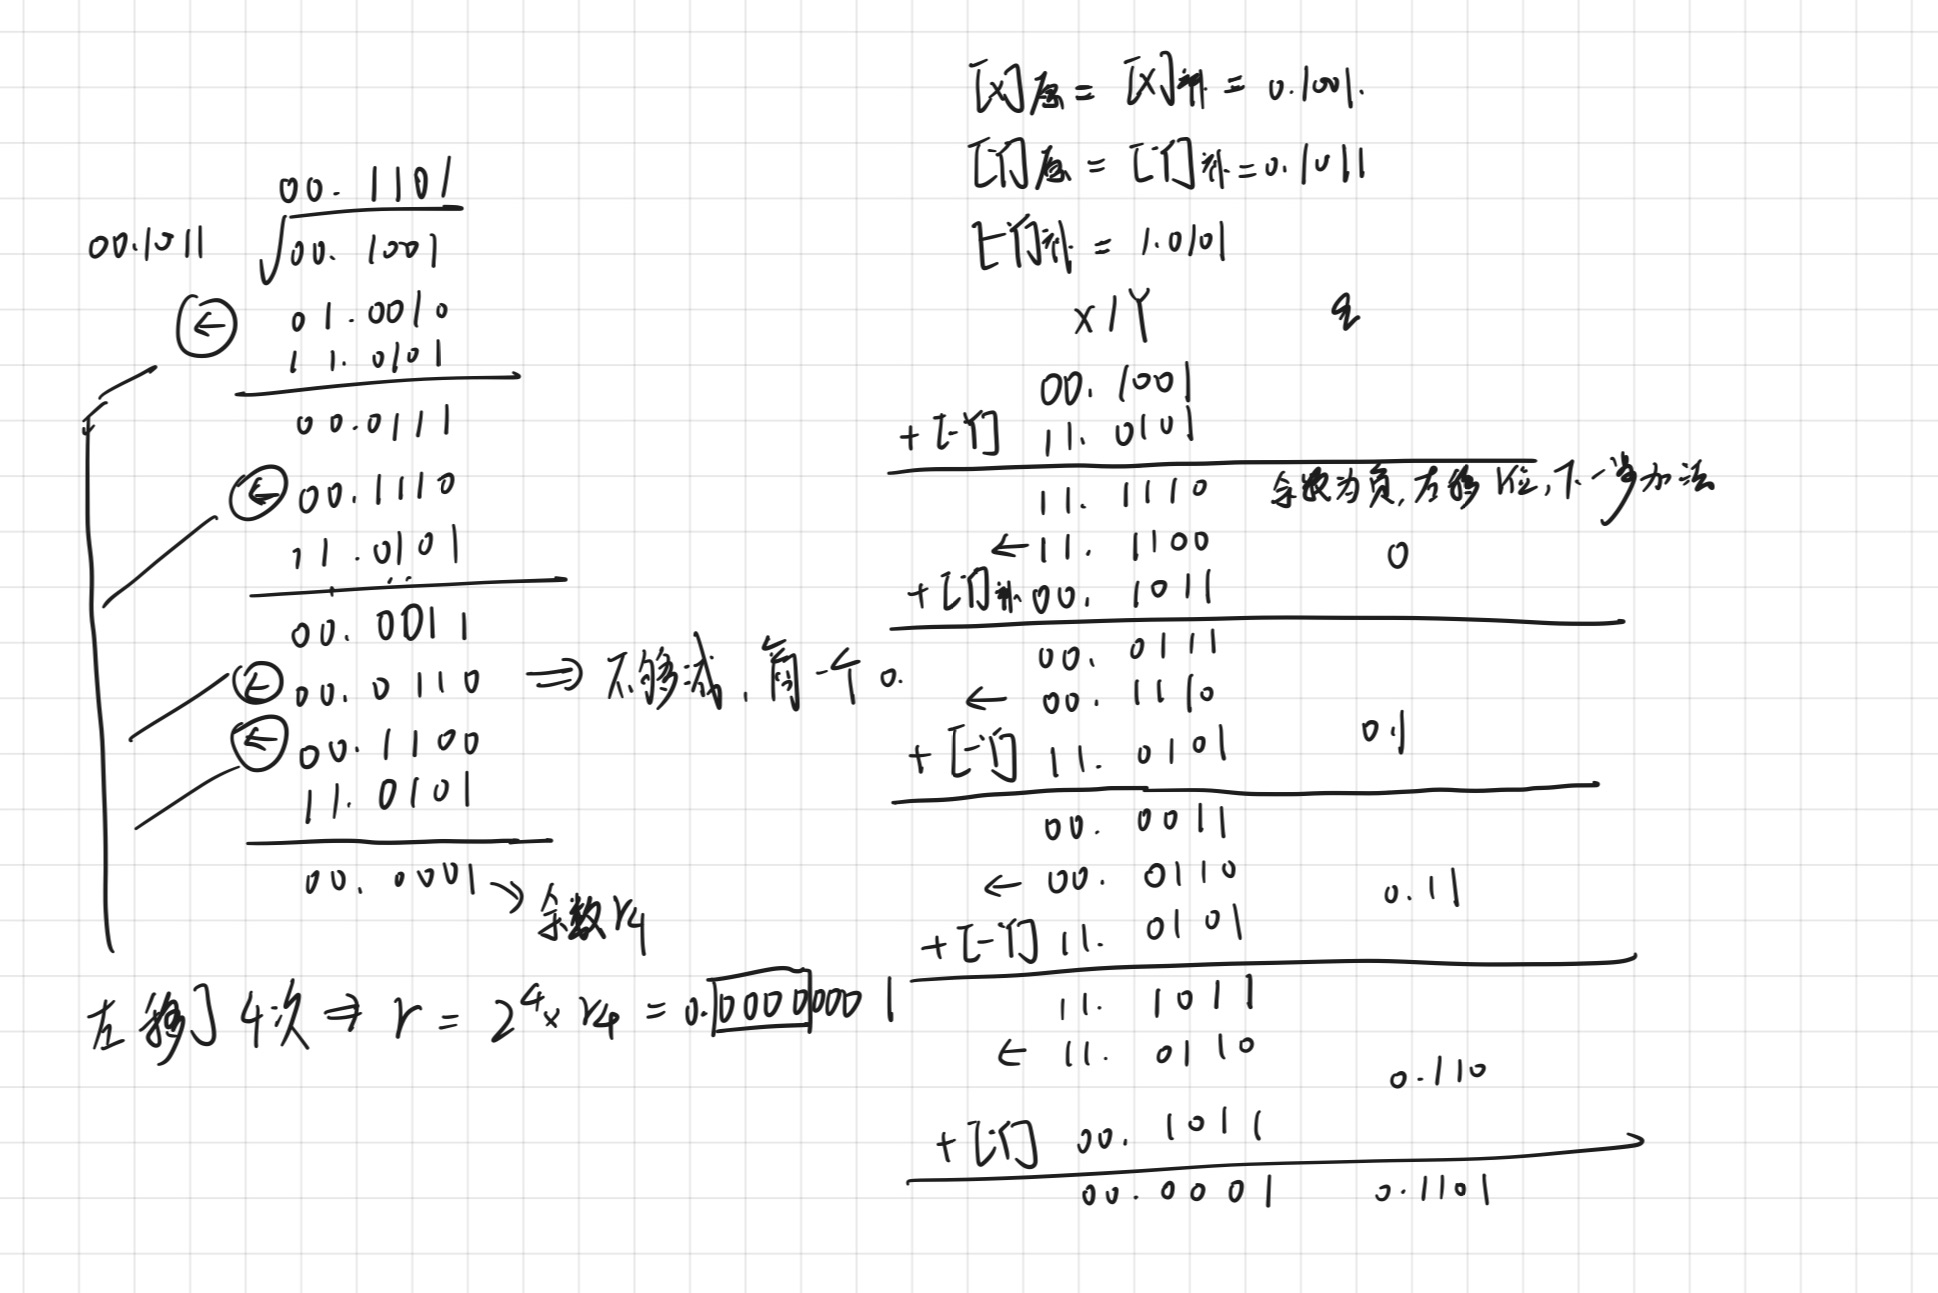 00.1101
00.1011 √00.1001
← 01.0010
11.0101
00.0111
← 00.1110
11.0101
00.0011
← 00.0110 ⇒ 不够减,商一个0.
← 00.1100
11.0101
00.0001 → 余数r4
左移了4次 ⇒ r = 2^4 × r4 = 0.00000001
[X]原 = [X]补 = 0.1001.
[Y]原 = [Y]补 = 0.1011
[-Y]补 = 1.0101
X/Y q
00.1001
+[-Y] 11.0101
11.1110 余数为负,左移1位,下一步加法
← 11.1100 0
+[Y]补 00.1011
00.0111
← 00.1110
+[-Y] 11.0101 0.1
00.0011
← 00.0110 0.11
+[-Y] 11.0101
11.1011
← 11.0110 0.110
+[Y] 00.1011
00.0001 0.1101